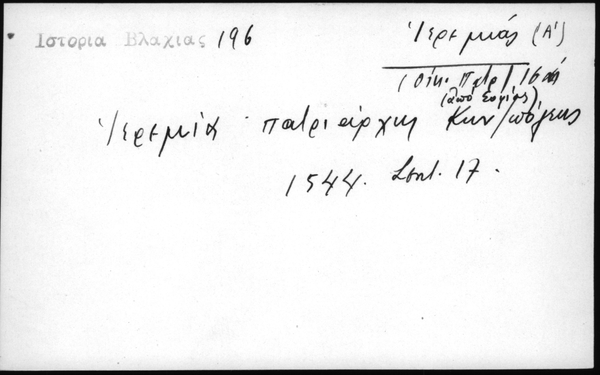 Ιστορια Βλαχιας 196
Ἱερεμίας (Α')
(Οἰκ. Πατρ) 16ος
(ἀπὸ Σοφίας)
Ἱερεμία πατριάρχης Κων/πόλεως
1544. Σεπτ. 17.